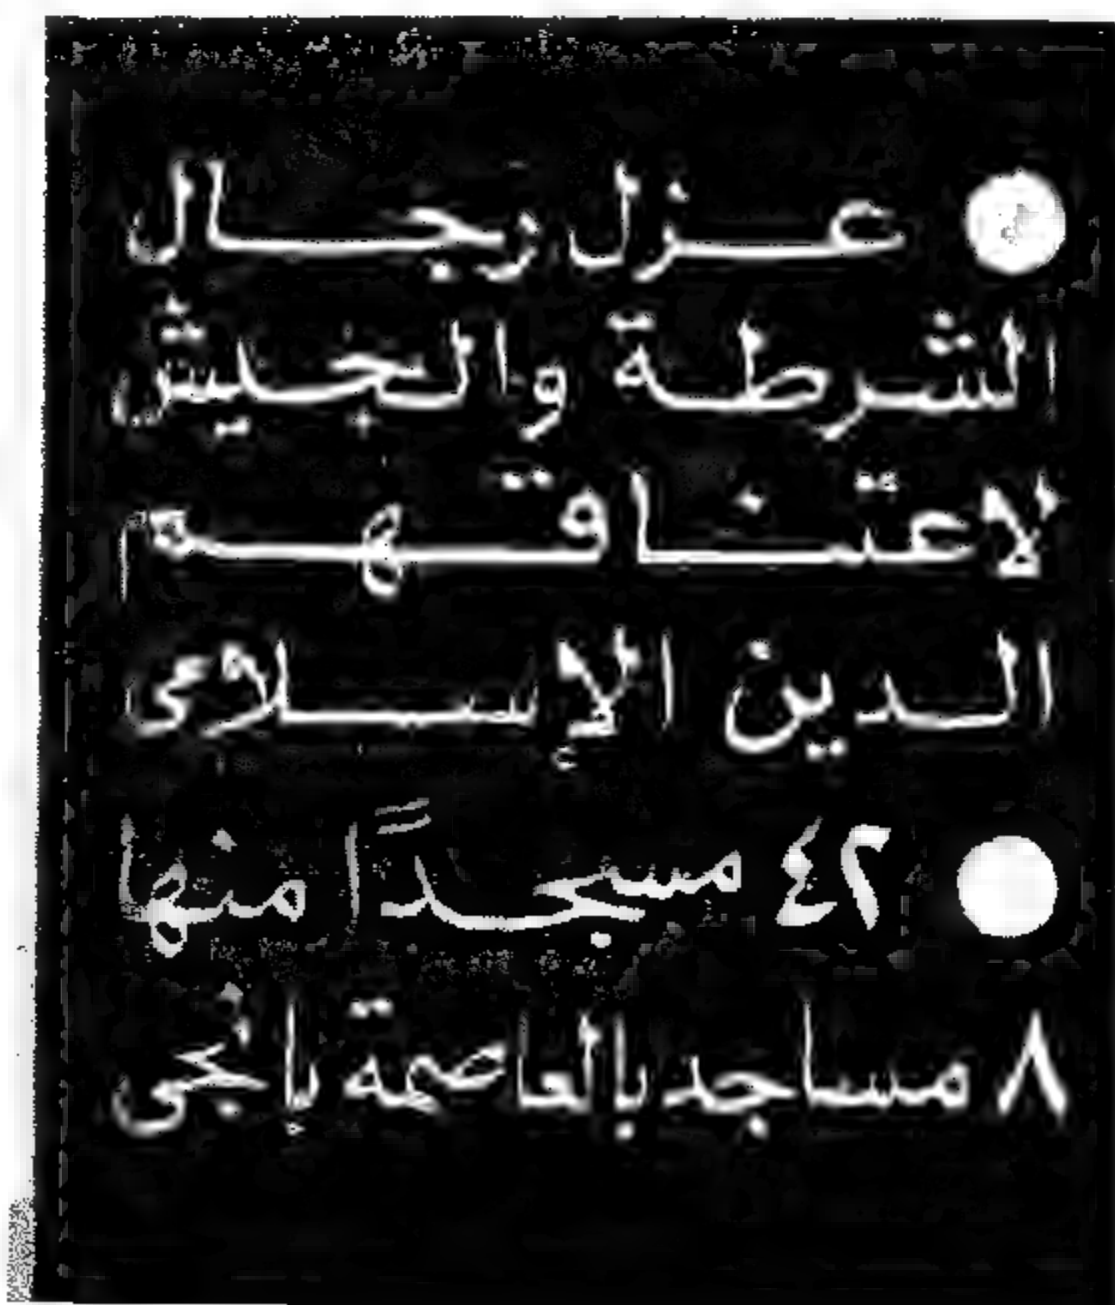 ● عزل رجال
الشرطة والجيش
لاعتناقهم
الدين الإسلامى
● ٤٢ مسجدًا منها
٨ مساجد بالعاصمة بانجى